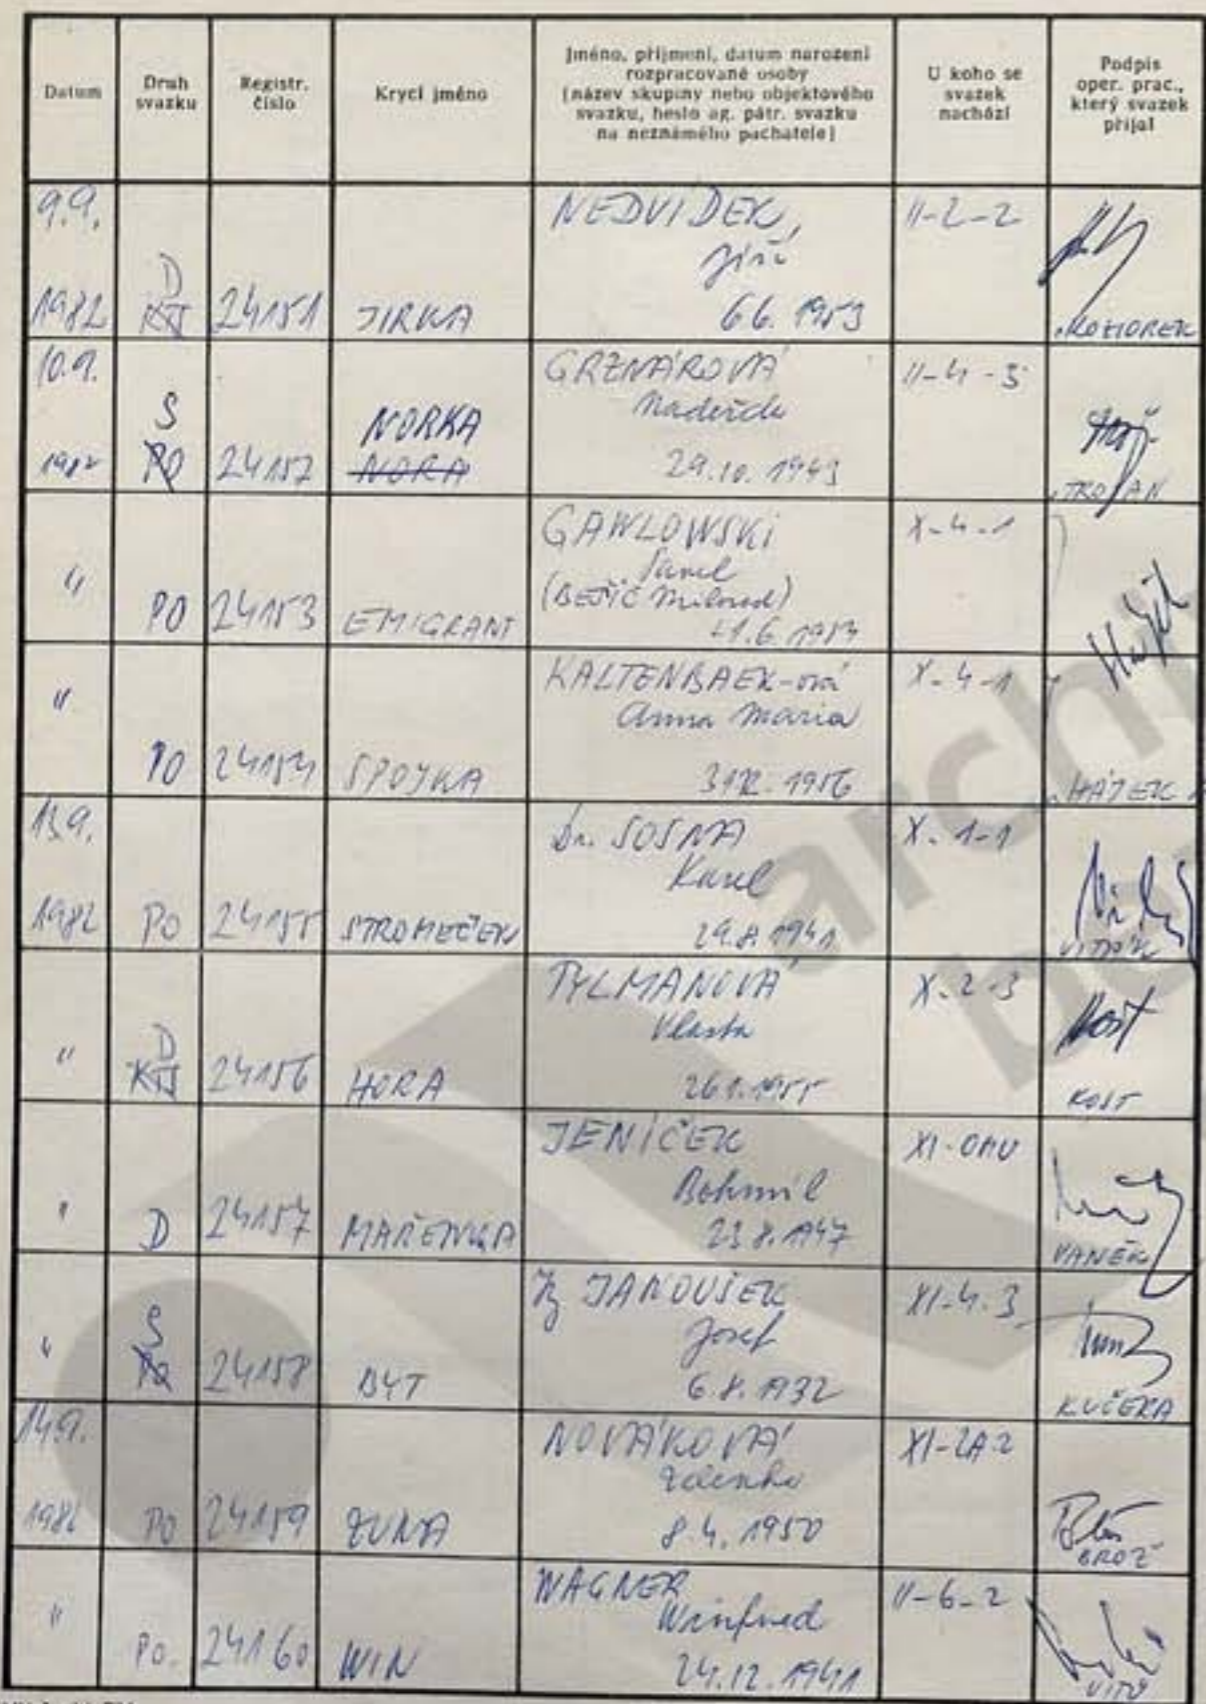 Datum
Druh
svazku
Registr.
číslo
Krycí jméno
Jméno, příjmení, datum narození
rozpracované osoby
(název skupiny nebo objektového
svazku, heslo ag. pátr. svazku
na neznámého pachatele)
U koho se
svazek
nachází
Podpis
oper. prac.,
který svazek
přijal
9.9.
1982
D
KTS
24151
JIRKA
NEDVÍDEK,
Jiří
6.6. 1953
II-2-2
10.9.
1982
S
PO
24152
NORKA
NORA
GRZNÁROVÁ
Naděžda
29.10. 1943
II-4-3
TROJAN
"
PO
24153
EMIGRANT
GAWLOWSKI
Pavel
Milorad)
X-4-1
"
PO
24154
SPOJKA
KALTENBAEK-ová
Anna Maria
1956
X-4-1
HÁJEK
13.9.
1982
PO
24155
STROMEČEK
Dr. SOSNA
Karel
29.8. 1941
X-1-1
"
D
KTS
24156
HORA
TYLMANOVÁ
Vlasta
26.1. 1955
X-2-3
KOST
"
D
24157
MAŘENKA
JENÍČEK
Bohumil
23.8. 1947
XI-OMU
VANĚK
"
S
PO
24158
BYT
JANOUŠEK
Josef
6.8. 1932
XI-4-3
KUČERA
14.9.
1982
PO
24159
ZUNA
NOVÁKOVÁ
Zdenka
8.4. 1950
XI-2A-2
BROŽ
"
PO.
24160
WIN
WAGNER
Winfried
24.12. 1941
II-6-2